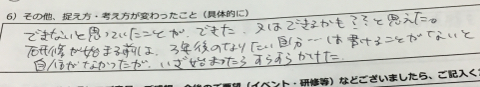 6）その他、捉え方・考え方が変わったこと（具体的に）
できないと思っていたことが、できた。又はできるかも??と思えた。
研修が始まる前は、3年後のなりたい自分…は書けることがないと
自信がなかったが、いざ始まったらすらすらかけた。
今後のご要望（イベント・研修等）などございましたら、ご記入く